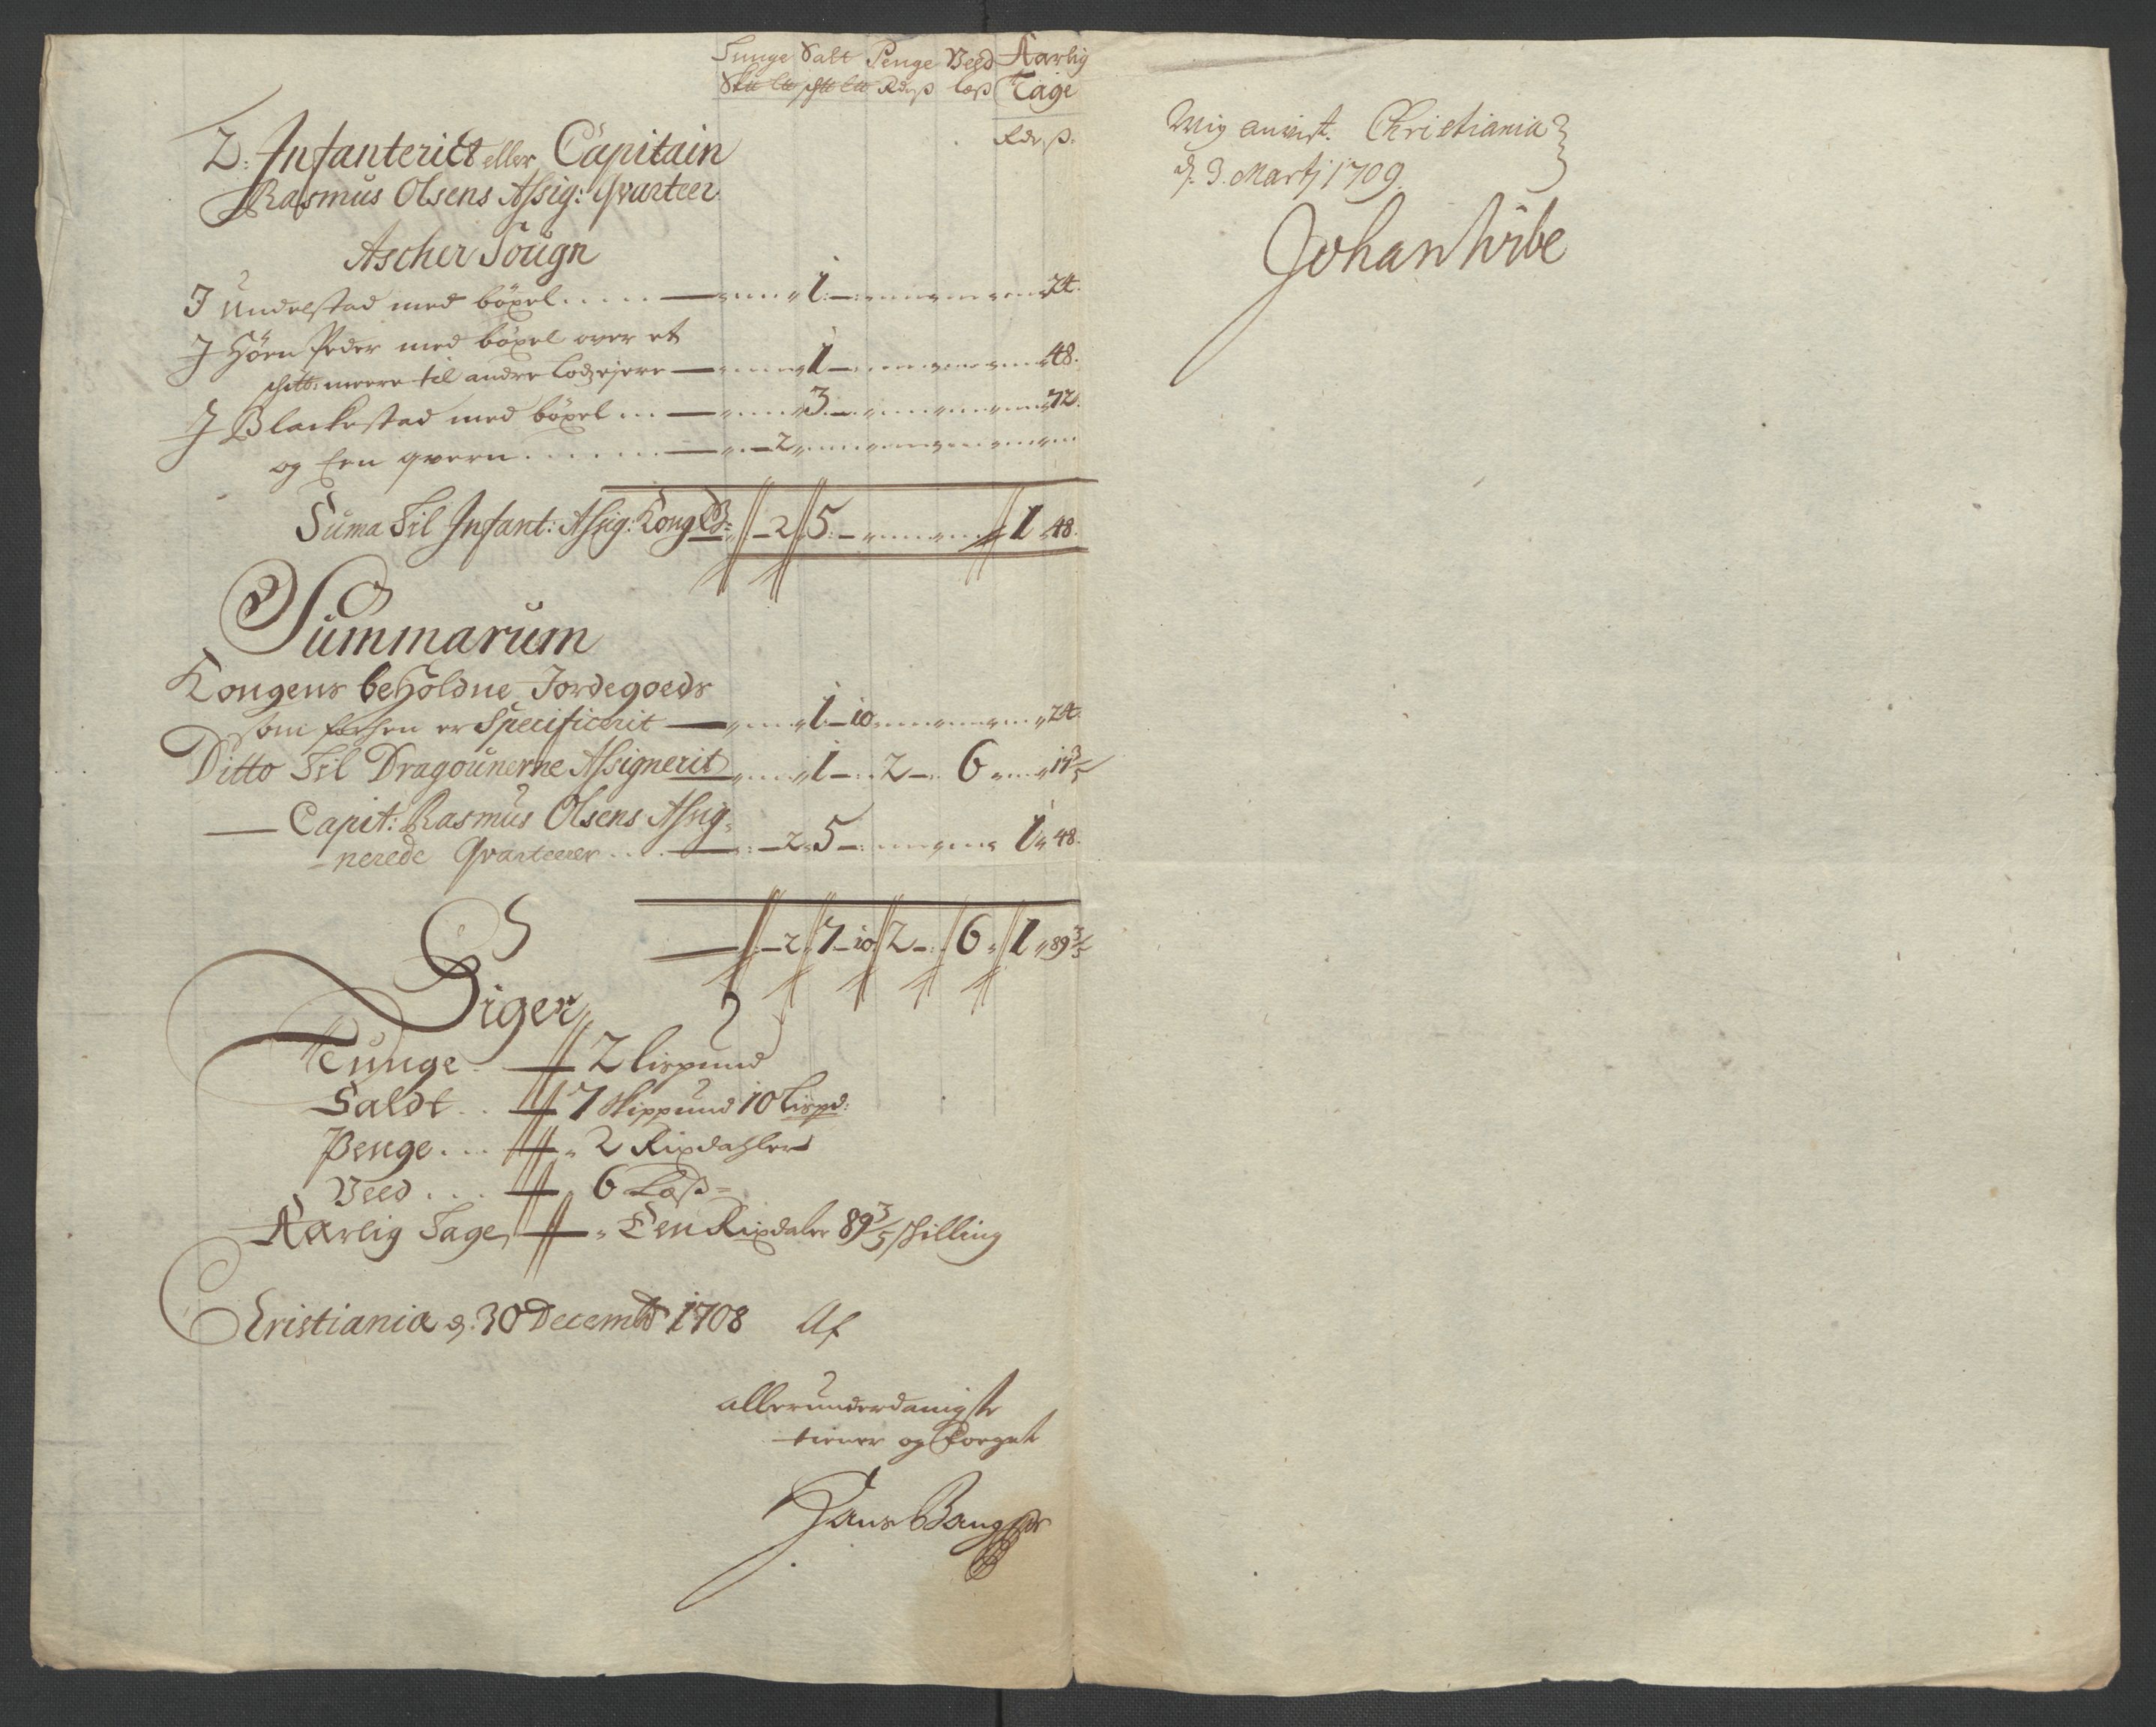 Tunge Salt Penge Veed Aarlig
Sk℔ L℔ sk℔ L℔ Rdrß læß Tage
Rdr ß.
2: Infanteriet eller Capitain
Rasmus Olsens Assig: Qvarteer
Ascher Sougn
I Undelstad med böxel ..... 1 24.
I Höen Peder med böxel over et
sk℔: meere til andre Lodzejere 1 48.
I Blackestad med böxel ... 3 72.
og Een qvern ...... 2
Suma Til Infant: Assig: Kong 2 5 1 48.
Summarum
Kongens beholdne Jordegoeds
som forhen er Specificerit 1 10 24.
Ditto Til Dragounerne Assignerit 1 2 6 17 3/5
Capit: Rasmus Olsens Assig=
nerede Qvarteerer .... 2 5 1 48.
2 7 10 2 6 1 89 3/5
Siger
Tunge 2 lispund
Saldt .. 7 Skippund 10 Lispd:
Penge ... 2 Rixdahler
Veed .... 6 Læß
Aarlig Tage Een Rixdaler 89 3/5 skilling
Christiania d. 30 Decembr 1708 Af
allerunderdanigste
tiener og Foeget
Hans Bang
Mig anvist. Christiania
d. 3. Martj 1709.
Johan Vibe